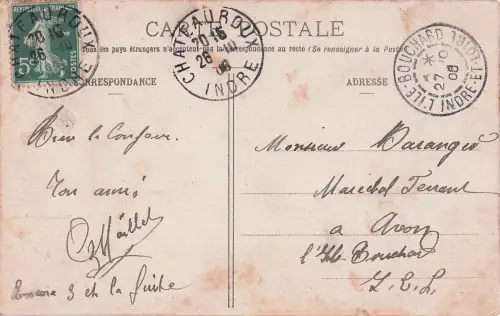 CARTE POSTALE
Tous les pays étrangers n'acceptent pas la correspondance au recto (Se renseigner à la Poste)
CORRESPONDANCE
ADRESSE
5c
POSTES
CHATEAUROUX
20 15
26
08
INDRE
L'ILE-BOUCHARD
27
08
INDRE-ET-LOIRE
Bien le Bonjour
Ton ami
Monsieur Barangé
Maréchal Ferrant
a Avon
l'Ile Bouchard
I. E. L.
3 et la suite